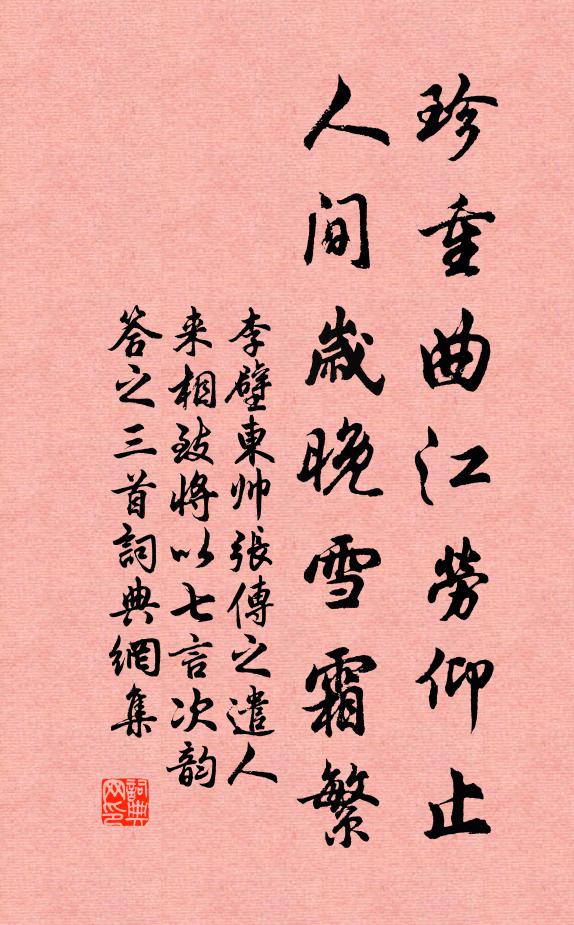 珍重曲江勞仰止
人間歲晚雪霜繁
李壁東帅張傳之遣人
来相致將以七言次韵
答之三首詞典網集
詞典网印